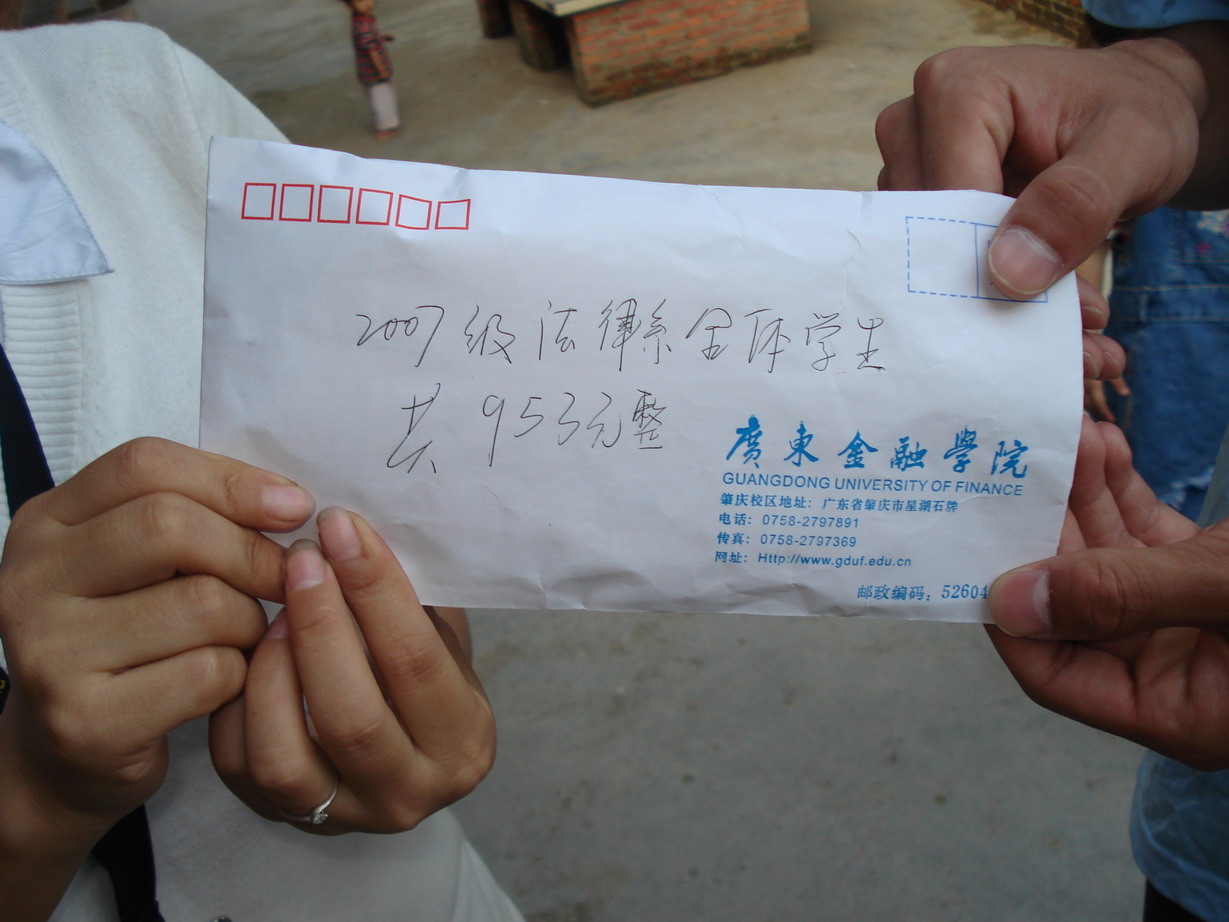 2007级法律系全体学生
共953元整
廣東金融學院
GUANGDONG UNIVERSITY OF FINANCE
肇庆校区地址：广东省肇庆市星湖石牌
电话：0758-2797891
传真：0758-2797369
网址：Http://www.gduf.edu.cn
邮政编码：52604